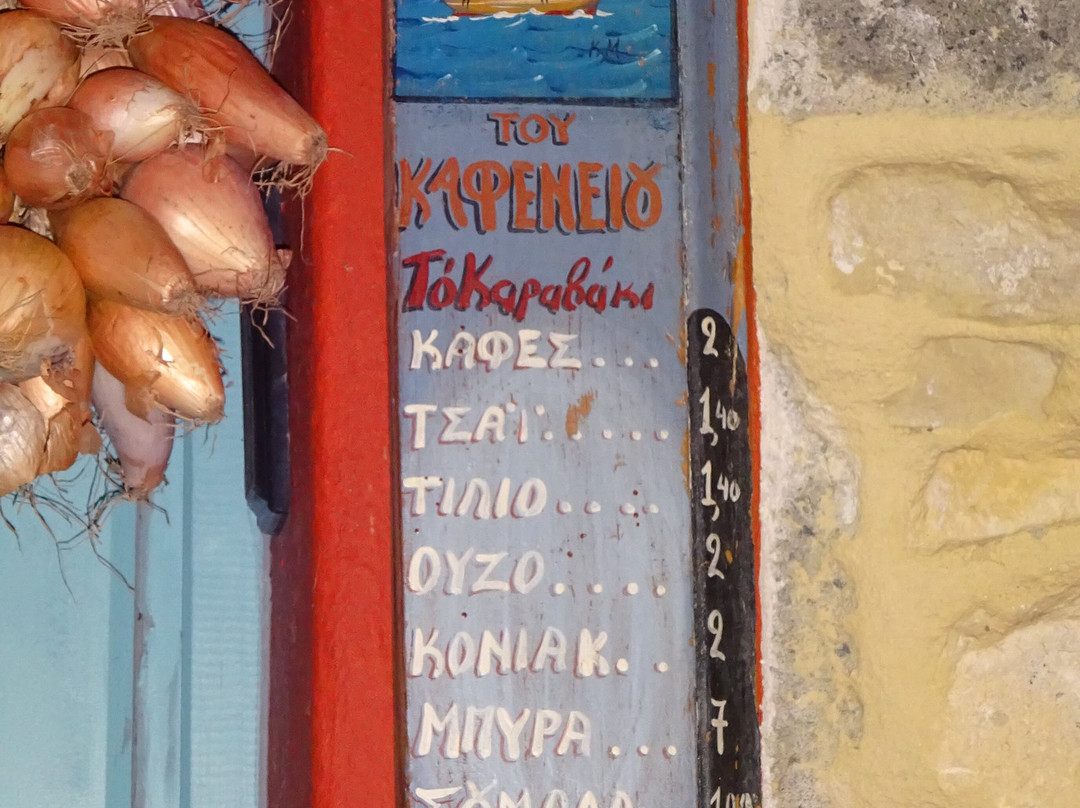 ΚΜ
ΤΟΥ
ΚΑΦΕΝΕΙȣ
Τό Καραβάκι
ΚΑΦΕΣ... 2
ΤΣΑΪ:..... 1,40
ΤΙΛΙΟ..... 1,40
ΟΥΖΟ.... 2
ΚΟΝΙΑΚ.. 2
ΜΠΥΡΑ... 7